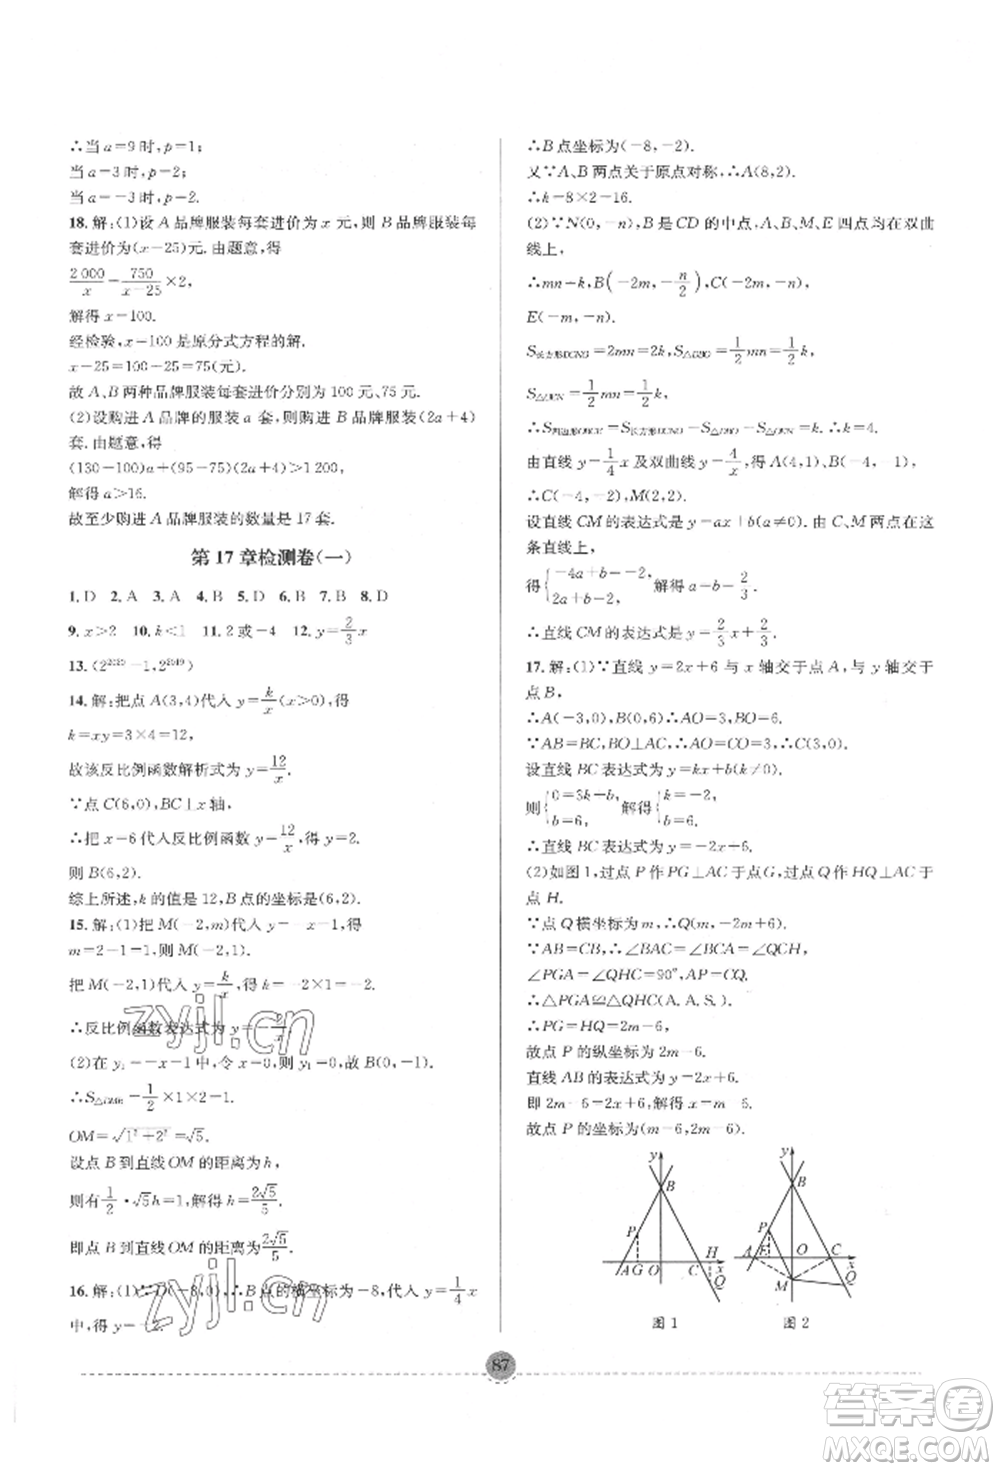 ∴当 a=9 时,p=1;
当 a=3 时,p=2;
当 a=-3 时,p=2.
18. 解:(1)设 A 品牌服装每套进价为 x 元,则 B 品牌服装每
套进价为(x-25)元. 由题意,得
2 000/x = 750/(x-25) ×2,
解得 x=100.
经检验,x=100 是原分式方程的解.
x-25=100-25=75(元).
故 A、B 两种品牌服装每套进价分别为 100 元、75 元.
(2)设购进 A 品牌的服装 a 套,则购进 B 品牌服装(2a+4)
套. 由题意,得
(130-100)a+(95-75)(2a+4)>1 200,
解得 a>16.
故至少购进 A 品牌服装的数量是 17 套.
第 17 章检测卷(一)
1. D 2. A 3. A 4. B 5. D 6. B 7. B 8. D
9. x>2 10. k<1 11. 2 或-4 12. y=2/3 x
13.
14. 解:把点 A(3,4)代入 y=k/x (x>0),得
k=xy=3×4=12,
故该反比例函数解析式为 y=12/x.
∵点 C(6,0),BC⊥x 轴,
∴把 x=6 代入反比例函数 y=12/x,得 y=2.
则 B(6,2).
综上所述,k 的值是 12,B 点的坐标是(6,2).
15. 解:(1)把 M(-2,m)代入 y=-x-1,得
m=2-1=1,则 M(-2,1).
把 M(-2,1)代入 y=k/x,得 k=-2×1=-2.
∴反比例函数表达式为 y=-2/x.
(2)在 y₁=-x-1 中,令 x=0,则 y₁=-1,故 B(0,-1).
∴S△OMB=1/2×1×2=1.
OM=√(1²+2²)=√5.
设点 B 到直线 OM 的距离为 h,
则有 1/2·√5h=1,解得 h=2√5/5.
即点 B 到直线 OM 的距离为 2√5/5.
16. 解:(1)∵D(-8,0),∴B 点的横坐标为-8,代入 y=1/4 x
中,得 y=-2.
∴B 点坐标为(-8,-2).
又∵A、B 两点关于原点对称,∴A(8,2).
∴k=8×2=16.
(2)∵N(0,-n),B 是 CD 的中点,A、B、M、E 四点均在双曲
线上,
∴mn=k,B(-2m,-n/2),C(-2m,-n),
E(-m,-n).
S长方形DCNO=2mn=2k,S△DBO=1/2 mn=1/2 k,
S△OEN=1/2 mn=1/2 k,
∴S四边形OBCE=S长方形DCNO-S△DBO-S△OEN=k=4.
由直线 y=1/4 x 及双曲线 y=4/x,得 A(4,1),B(-4,-1),
∴C(-4,-2),M(2,2).
设直线 CM 的表达式是 y=ax+b(a≠0). 由 C、M 两点在这
条直线上,
得{-4a+b=-2, 2a+b=2, 解得 a=b=2/3.
∴直线 CM 的表达式是 y=2/3 x+2/3.
17. 解:(1)∵直线 y=2x+6 与 x 轴交于点 A,与 y 轴交于
点 B,
∴A(-3,0),B(0,6),∴AO=3,BO=6.
∵AB=BC,BO⊥AC,∴AO=CO=3,∴C(3,0).
设直线 BC 表达式为 y=kx+b(k≠0).
则{0=3k+b, b=6, 解得{k=-2, b=6.
∴直线 BC 表达式为 y=-2x+6.
(2)如图 1,过点 P 作 PG⊥AC 于点G,过点 Q 作 HQ⊥AC 于
点 H.
∵点 Q 横坐标为 m,∴Q(m,-2m+6).
∵AB=CB,∴∠BAC=∠BCA=∠HCQ.
∠PGA=∠QHC=90°,AP=CQ.
∴△PGA≌△QHC(A. A. S.).
∴PG=HQ=2m-6,
故点 P 的纵坐标为 2m-6.
直线 AB 的表达式为 y=2x+6.
即 2m-6=2x+6,解得 x=m-6.
故点 P 的坐标为(m-6,2m-6).
y B P H A G O C x Q
图 1
y B P A E O C x M Q
图 2
87
zyjl.cn
zyjl.cn
答案圈
MXQE.COM